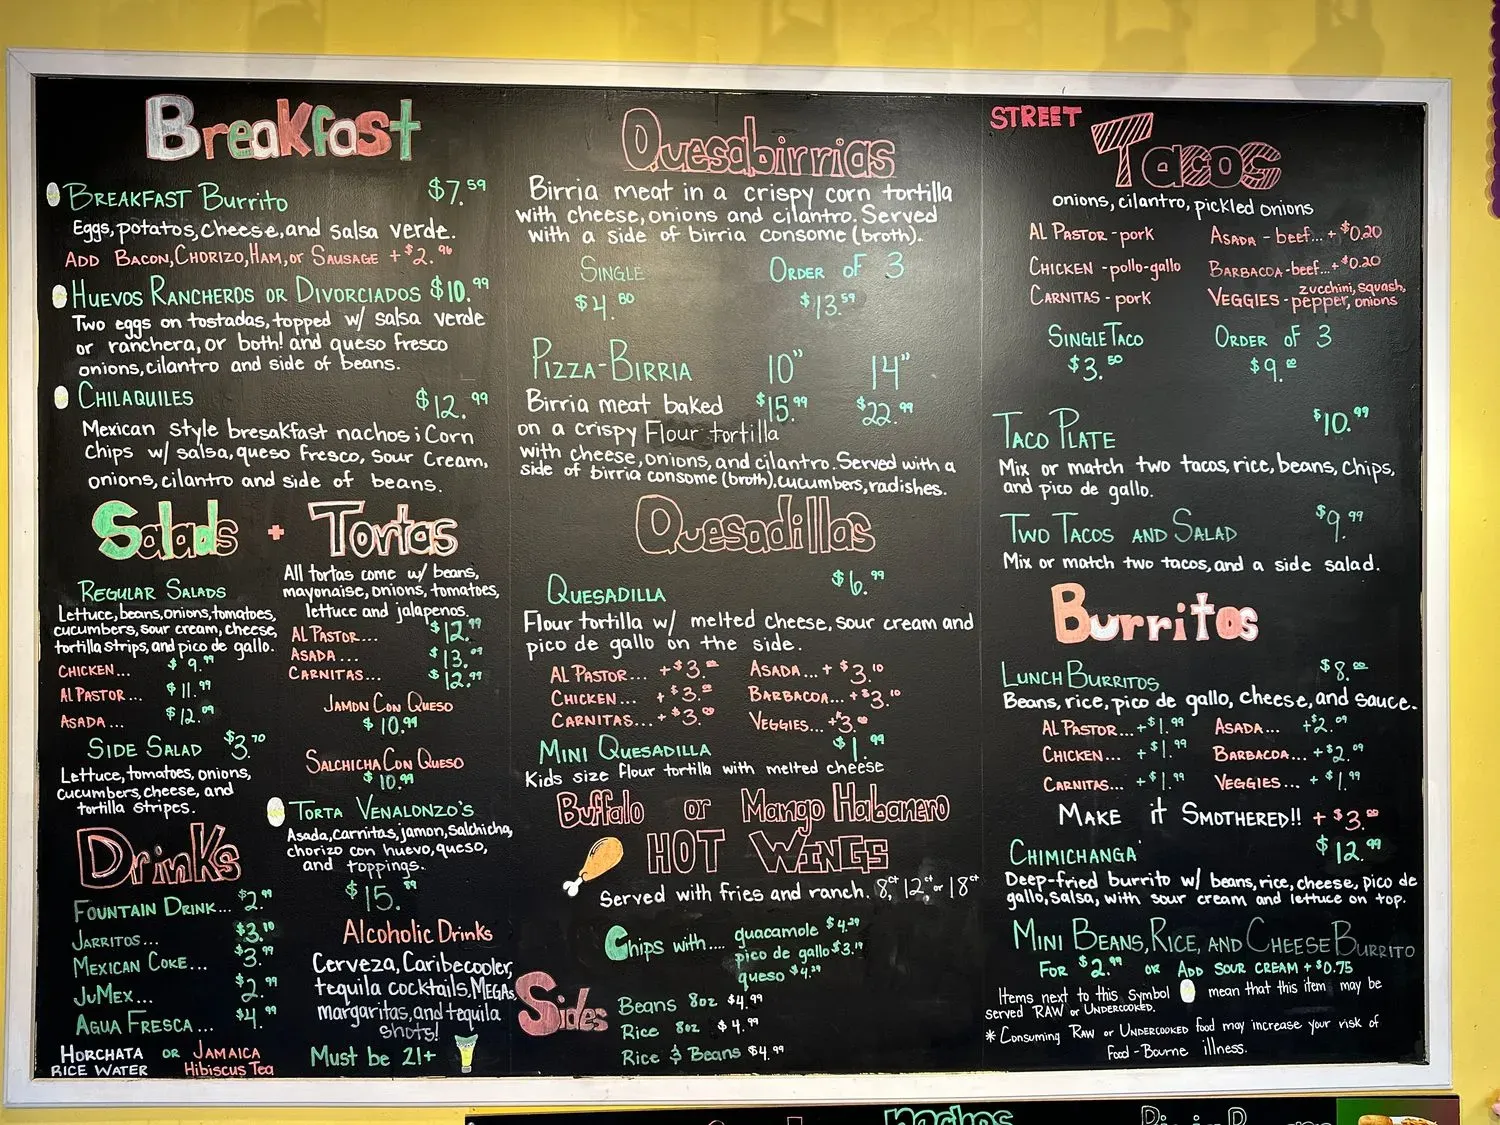 Breakfast
BREAKFAST Burrito $7.59
Eggs, potatos, cheese, and salsa verde.
ADD BACON, CHORIZO, HAM, or SAUSAGE + $2.96
HUEVOS RANCHEROS OR DIVORCIADOS $10.99
Two eggs on tostadas, topped w/ salsa verde
or ranchera, or both! and queso fresco
onions, cilantro and side of beans.
CHILAQUILES $12.99
Mexican style bresakfast nachos; Corn
Chips w/ salsa, queso fresco, sour cream,
onions, cilantro and side of beans.
Salads + Tortas
REGULAR SALADS
Lettuce, beans, onions, tomatoes,
cucumbers, sour cream, cheese,
tortilla strips, and pico de gallo.
CHICKEN... $9.99
AL PASTOR... $11.99
ASADA... $12.09
SIDE SALAD $3.70
Lettuce, tomatoes, onions,
cucumbers, cheese, and
tortilla stripes.
Drinks
FOUNTAIN DRINK... $2.99
JARRITOS... $3.10
MEXICAN COKE... $3.99
JUMEX... $2.99
AGUA FRESCA... $4.99
HORCHATA OR JAMAICA
RICE WATER Hibiscus Tea
All tortas come w/ beans,
mayonaise, onions, tomatoes,
lettuce and jalapenos.
AL PASTOR... $12.99
ASADA... $13.09
CARNITAS... $12.99
JAMON CON QUESO
$10.99
SALCHICHA CON QUESO
$10.99
TORTA VENALONZO'S
Asada, carnitas, jamon, salchicha,
chorizo con huevo, queso,
and toppings.
$15.
Alcoholic Drinks
Cerveza, Caribecooler,
tequila cocktails, MEGAs
margaritas, and tequila
shots!
Must be 21+
Quesabirrias
Birria meat in a crispy corn tortilla
with cheese, onions and cilantro. Served
with a side of birria consome (broth).
SINGLE ORDER OF 3
$4.80 $13.59
PIZZA-BIRRIA 10" 14"
Birria meat baked $15.99 $22.99
on a crispy Flour tortilla
with cheese, onions, and cilantro. Served with a
side of birria consome (broth). cucumbers, radishes.
Quesadillas
QUESADILLA $6.99
Flour tortilla w/ melted cheese, sour cream and
pico de gallo on the side.
AL PASTOR... + $3.00 ASADA... + $3.10
CHICKEN... + $3.00 BARBACOA... + $3.10
CARNITAS... + $3.00 VEGGIES... + $3.00
MINI QUESADILLA $1.99
Kids size flour tortilla with melted cheese
Buffalo or Mango Habanero
HOT WINGS
Served with fries and ranch. 8ct, 12ct or 18ct
Chips with.... guacamole $4.29
pico de gallo $3.19
queso $4.29
Sides
Beans 8oz $4.99
Rice 8oz $4.99
Rice & Beans $4.99
STREET
Tacos
onions, cilantro, pickled onions
AL PASTOR - pork ASADA - beef... + $0.20
CHICKEN - pollo-gallo BARBACOA - beef... + $0.20
CARNITAS - pork VEGGIES - zucchini, squash,
pepper, onions
SINGLE TACO ORDER OF 3
$3.50 $9.00
TACO PLATE $10.99
Mix or match two tacos, rice, beans, chips,
and pico de gallo.
TWO TACOS AND SALAD $9.99
Mix or match two tacos, and a side salad.
Burritos
LUNCH BURRITOS $8.00
Beans, rice, pico de gallo, cheese, and sauce.
AL PASTOR... + $1.99 ASADA... + $2.09
CHICKEN... + $1.99 BARBACOA... + $2.09
CARNITAS... + $1.99 VEGGIES... + $1.99
MAKE it SMOTHERED!! + $3.00
CHIMICHANGA $12.99
Deep-fried burrito w/ beans, rice, cheese, pico de
gallo, salsa, with sour cream and lettuce on top.
MINI BEANS, RICE, AND CHEESE BURRITO
FOR $2.99 OR ADD SOUR CREAM + $0.75
Items next to this symbol mean that this item may be
served RAW or UNDERCOOKED.
* Consuming RAW or UNDERCOOKED food may increase your risk of
Food-Bourne illness.
nachos